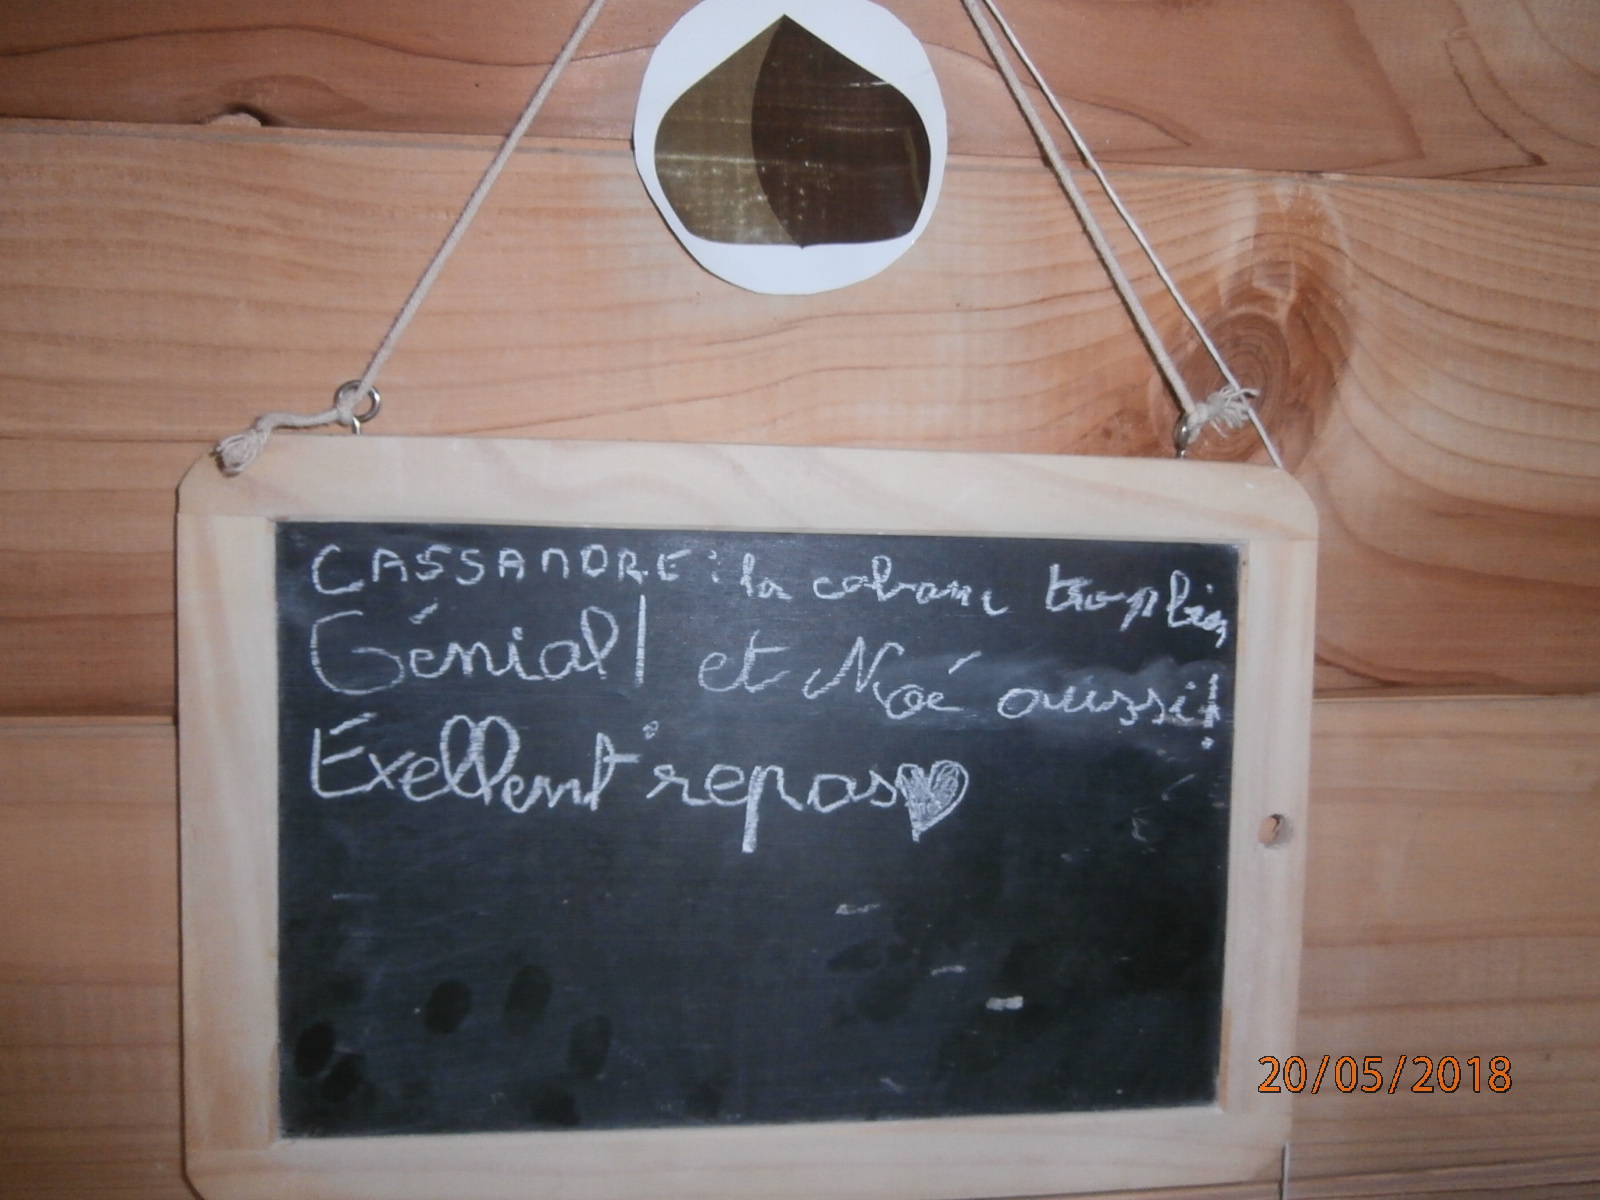 CASSANDRE : la cabane trop bien
Génial! et Noé aussi!
Exellent repas
20/05/2018